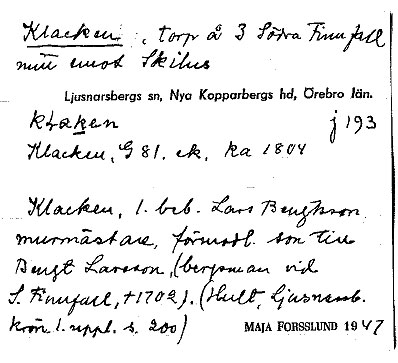 Klacken, torp å 3 Södra Finnfall
mitt emot Skilus
Ljusnarsbergs sn, Nya Kopparbergs hd, Örebro län.
klaken j 193
Klacken, G 81. ek. ka 1804
Klacken, 1. beb. Lars Bengtsson
murmästare, förmodl. son till
Bengt Larsson, (bergsman vid
S. Finnfall, †1702). (Hult, Ljusnarsb.
krön. 1. uppl. s. 200)
MAJA FORSSLUND 1947